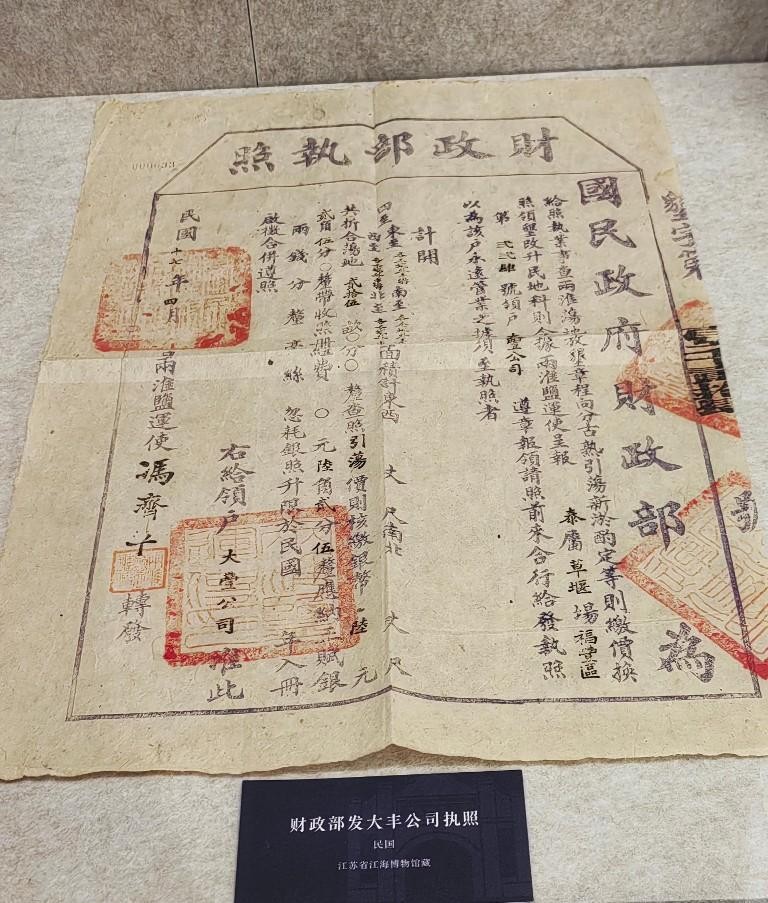 財政部執照
000633
國民政府財政部為
給照執業事查兩淮蕩地放墾章程向分古熟引蕩新淤酌定等則繳價換
照領墾改升民地科則今據兩淮鹽運使呈報 泰屬草堰場福豐區
第 弍弍肆 號領戶 大豐公司 遵章報領請照前來合行給發執照
以為該戶永遠管業之據須至執照者
計開
四至東至 南至
西至 北至 面積計東西 丈 尺南北 丈 尺
共折合蕩地 貳拾伍 畝〇分〇 釐查照引蕩價則核繳銀幣 陸 元
貳角伍分〇釐帶收照冊經費 〇 元陸角貳分伍釐應納正賦銀
兩錢分釐毫絲忽耗銀照升限於民國 年入冊
啟徵合併遵照
右給領戶 大豐公司 准此
民國 十七 年 四 月
兩淮鹽運使 馮 轉發
墾字第
號
财政部发大丰公司执照
民国
江苏省江海博物馆藏